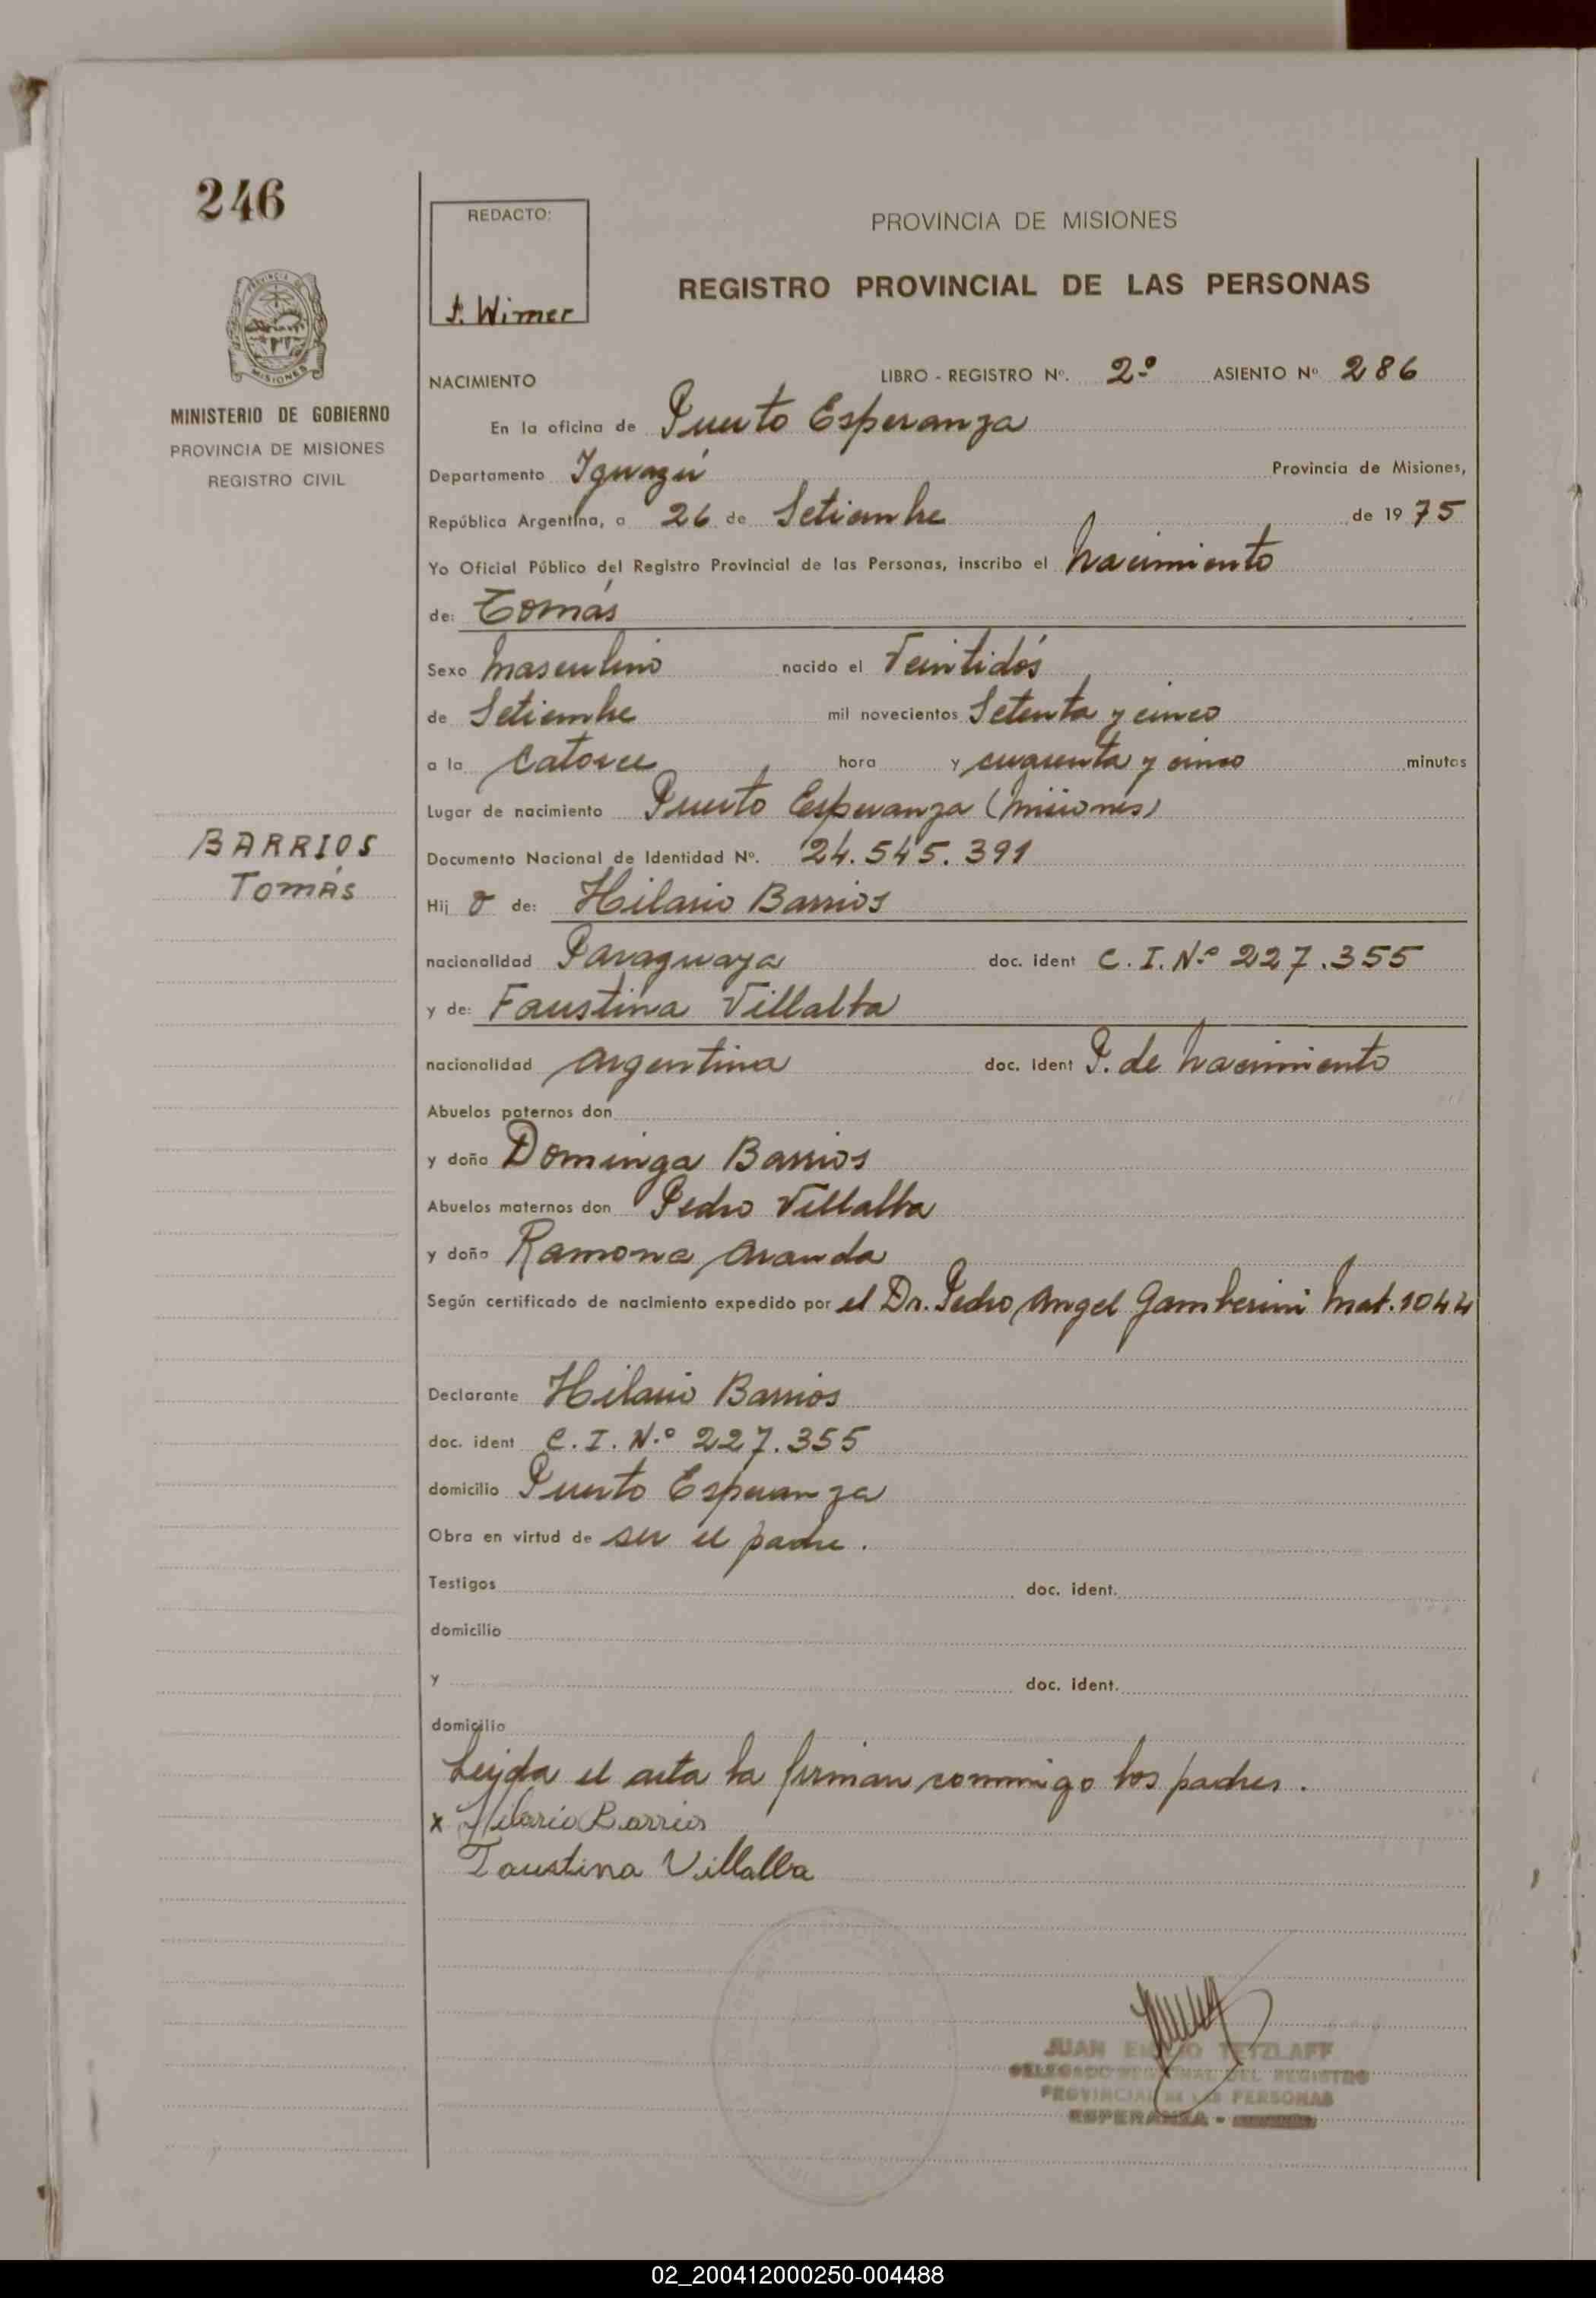 246
PROVINCIA DE
MISIONES
MINISTERIO DE GOBIERNO
PROVINCIA DE MISIONES
REGISTRO CIVIL
BARRIOS
TOMÁS
REDACTO:
Wimer
PROVINCIA DE MISIONES
REGISTRO PROVINCIAL DE LAS PERSONAS
NACIMIENTO LIBRO - REGISTRO Nº. 2º ASIENTO Nº 286
En la oficina de Puerto Esperanza
Departamento Iguazú Provincia de Misiones,
República Argentina, a 26 de Setiembre de 1975
Yo Oficial Público del Registro Provincial de las Personas, inscribo el Nacimiento
de: Tomás
Sexo Masculino nacido el Veintidós
de Setiembre mil novecientos Setenta y cinco
a la Catorce hora y cuarenta y cinco minutos
Lugar de nacimiento Puerto Esperanza (Misiones)
Documento Nacional de Identidad Nº. 24.545.391
Hij o de: Hilario Barrios
nacionalidad Paraguaya doc. ident C. I. Nº 227.355
y de: Faustina Villalba
nacionalidad Argentina doc. ident P. de Nacimiento
Abuelos paternos don
y doña Dominga Barrios
Abuelos maternos don Pedro Villalba
y doña Ramona Aranda
Según certificado de nacimiento expedido por el Dr. Pedro Angel Gamberini Mat. 1044
Declarante Hilario Barrios
doc. ident C. I. N.º 227.355
domicilio Puerto Esperanza
Obra en virtud de ser el padre.
Testigos doc. ident.
domicilio
y doc. ident.
domicilio
Leída el acta la firman conmigo los padres.
x Hilario Barrios
Faustina Villalba
JUAN EMILIO TETZLAFF
DELEGADO REGIONAL DEL REGISTRO
PROVINCIAL DE LAS PERSONAS
ESPERANZA -
02_200412000250-004488